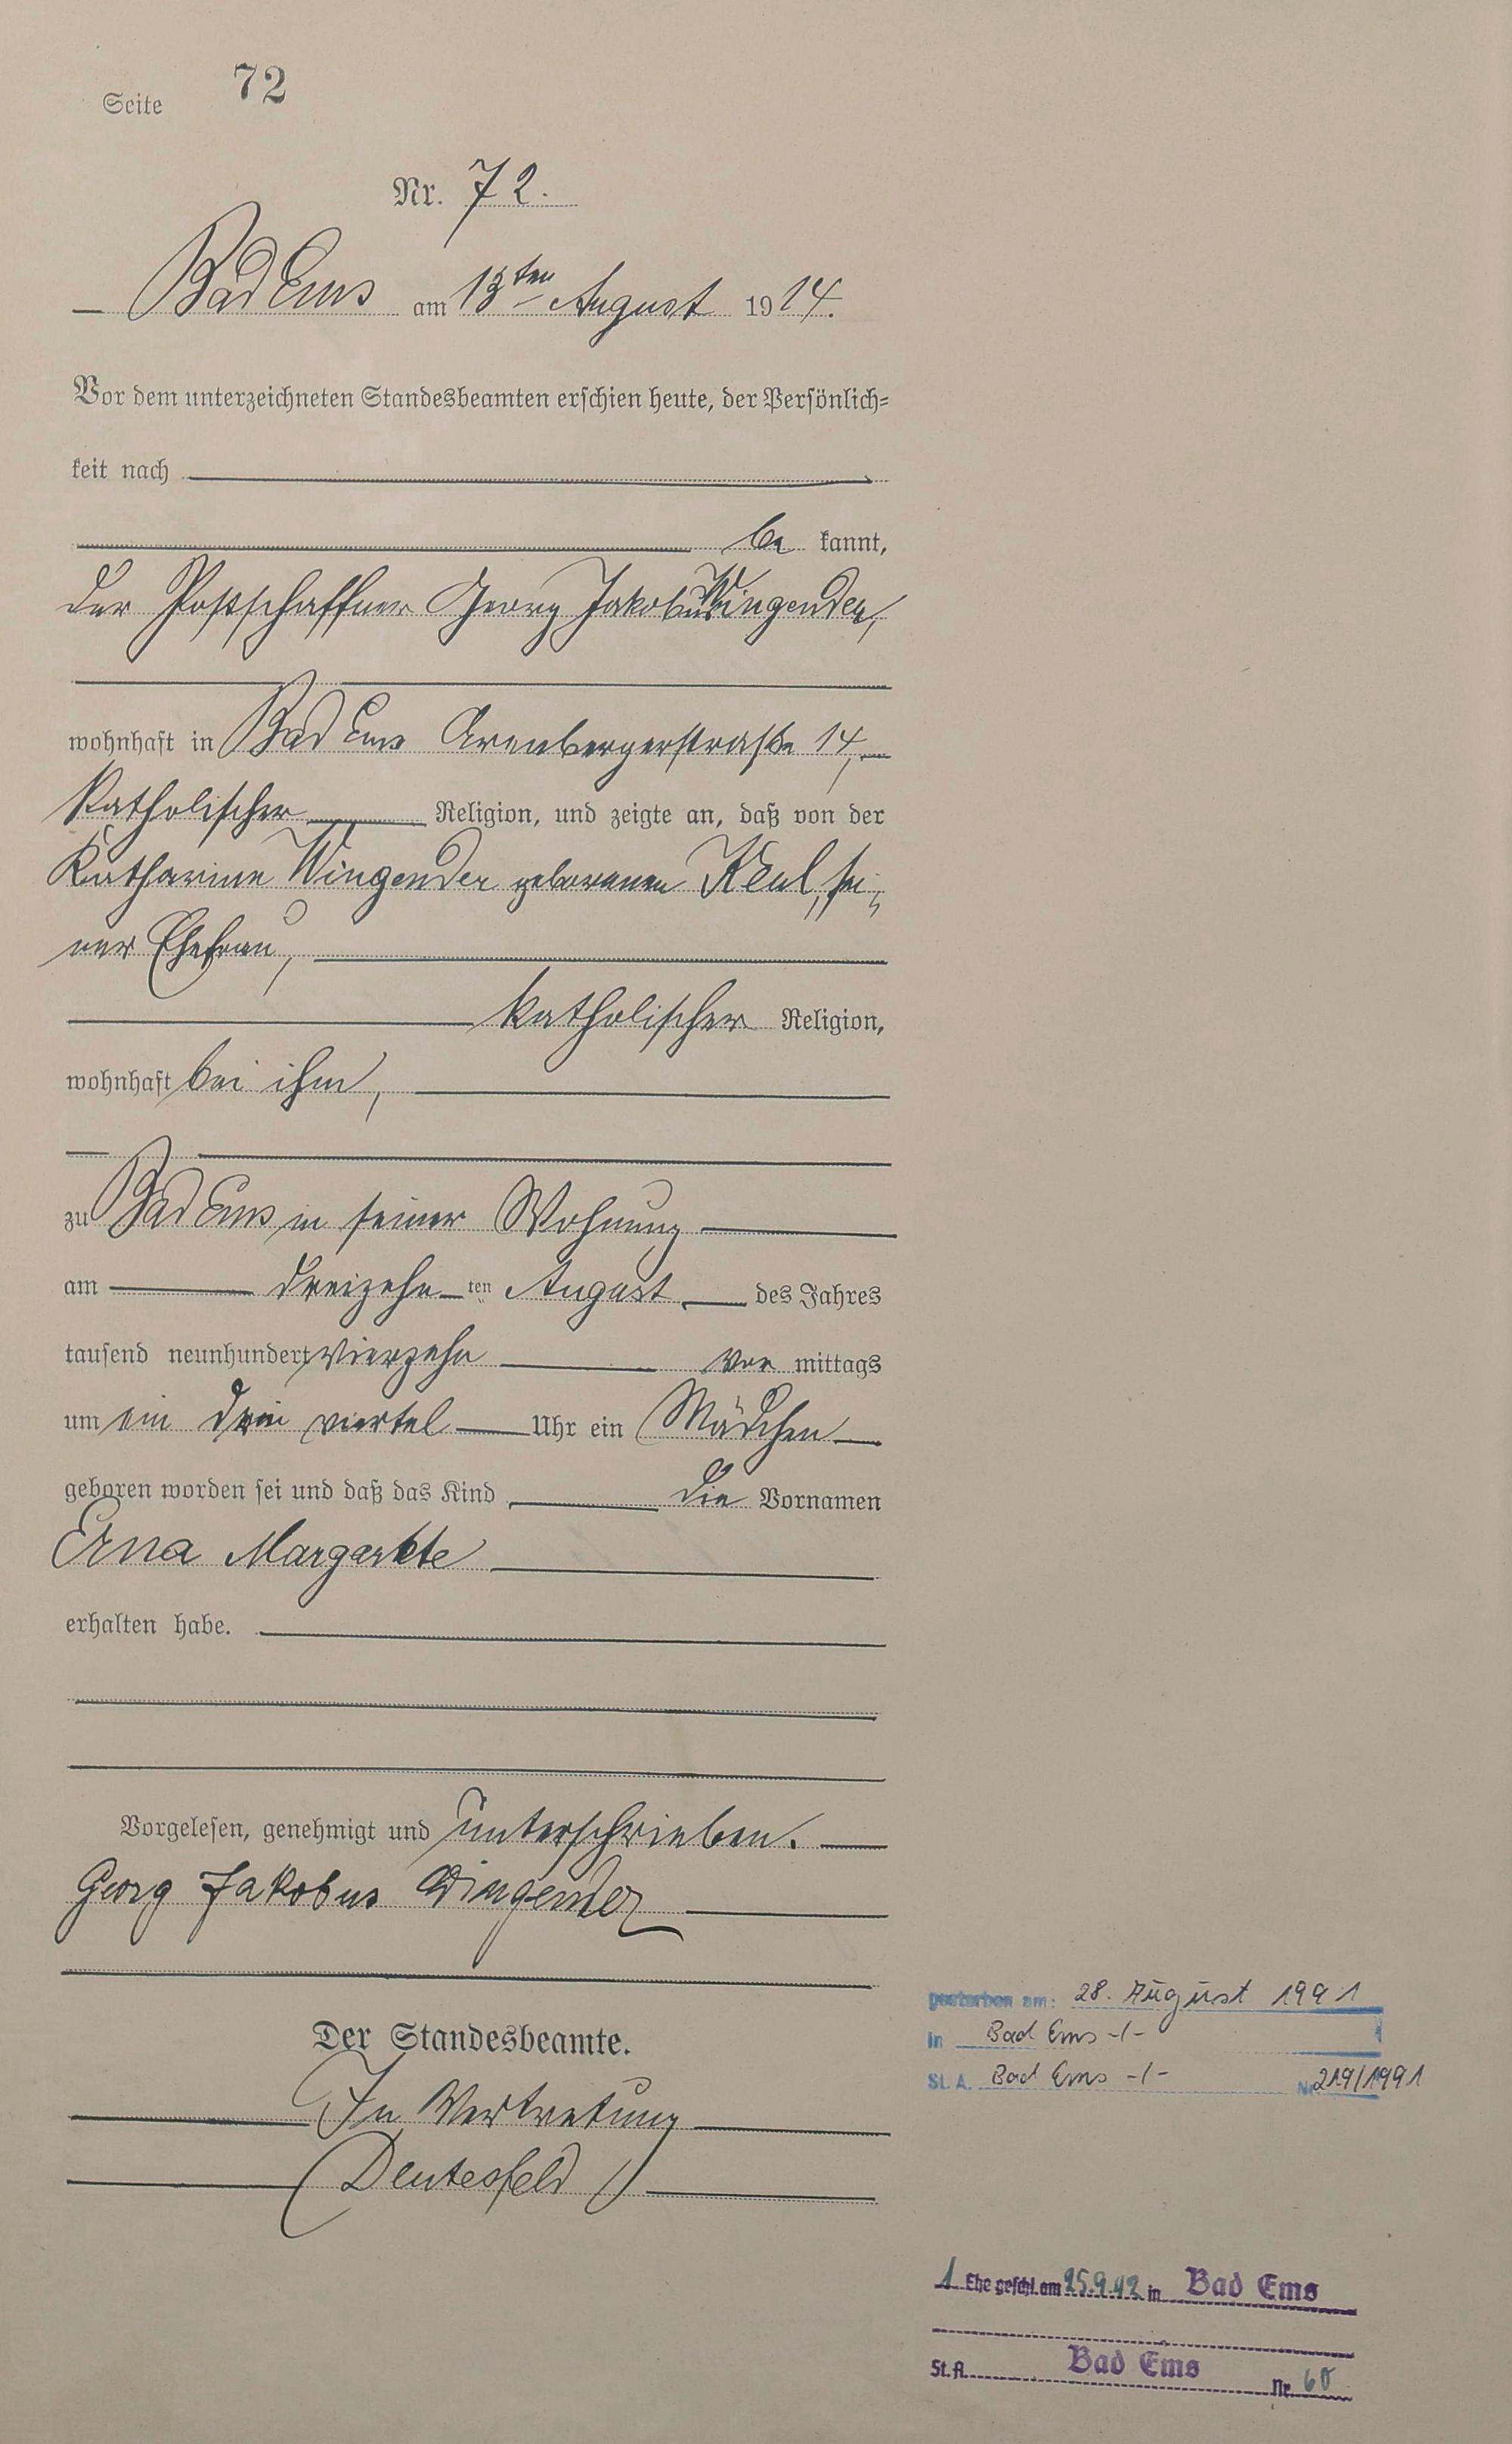 Seite 72
Nr. 72.
Bad Ems am 13ten August 1914.
Vor dem unterzeichneten Standesbeamten erschien heute, der Persönlich=
keit nach
be kannt,
der Postschaffner Georg Jakobus Wingender,
wohnhaft in Bad Ems Arenbergerstraße 14,
katholischer Religion, und zeigte an, daß von der
Katharine Wingender geborenen Keul, sei=
ner Ehefrau,
katholischer Religion,
wohnhaft bei ihm,
zu Bad Ems in seiner Wohnung
am dreizehn ten August des Jahres
tausend neunhundert vierzehn vor mittags
um ein drei viertel Uhr ein Mädchen
geboren worden sei und daß das Kind die Vornamen
Erna Margarete
erhalten habe.
Vorgelesen, genehmigt und unterschrieben.
Georg Jakobus Wingender
Der Standesbeamte.
In Vertretung
Deutesfeld
gestorben am: 28. August 1991
in Bad Ems -/-
St. A. Bad Ems -/- Nr. 219/1991
1 Ehe geschl. am 25.9.42 in Bad Ems
St. A. Bad Ems Nr. 60